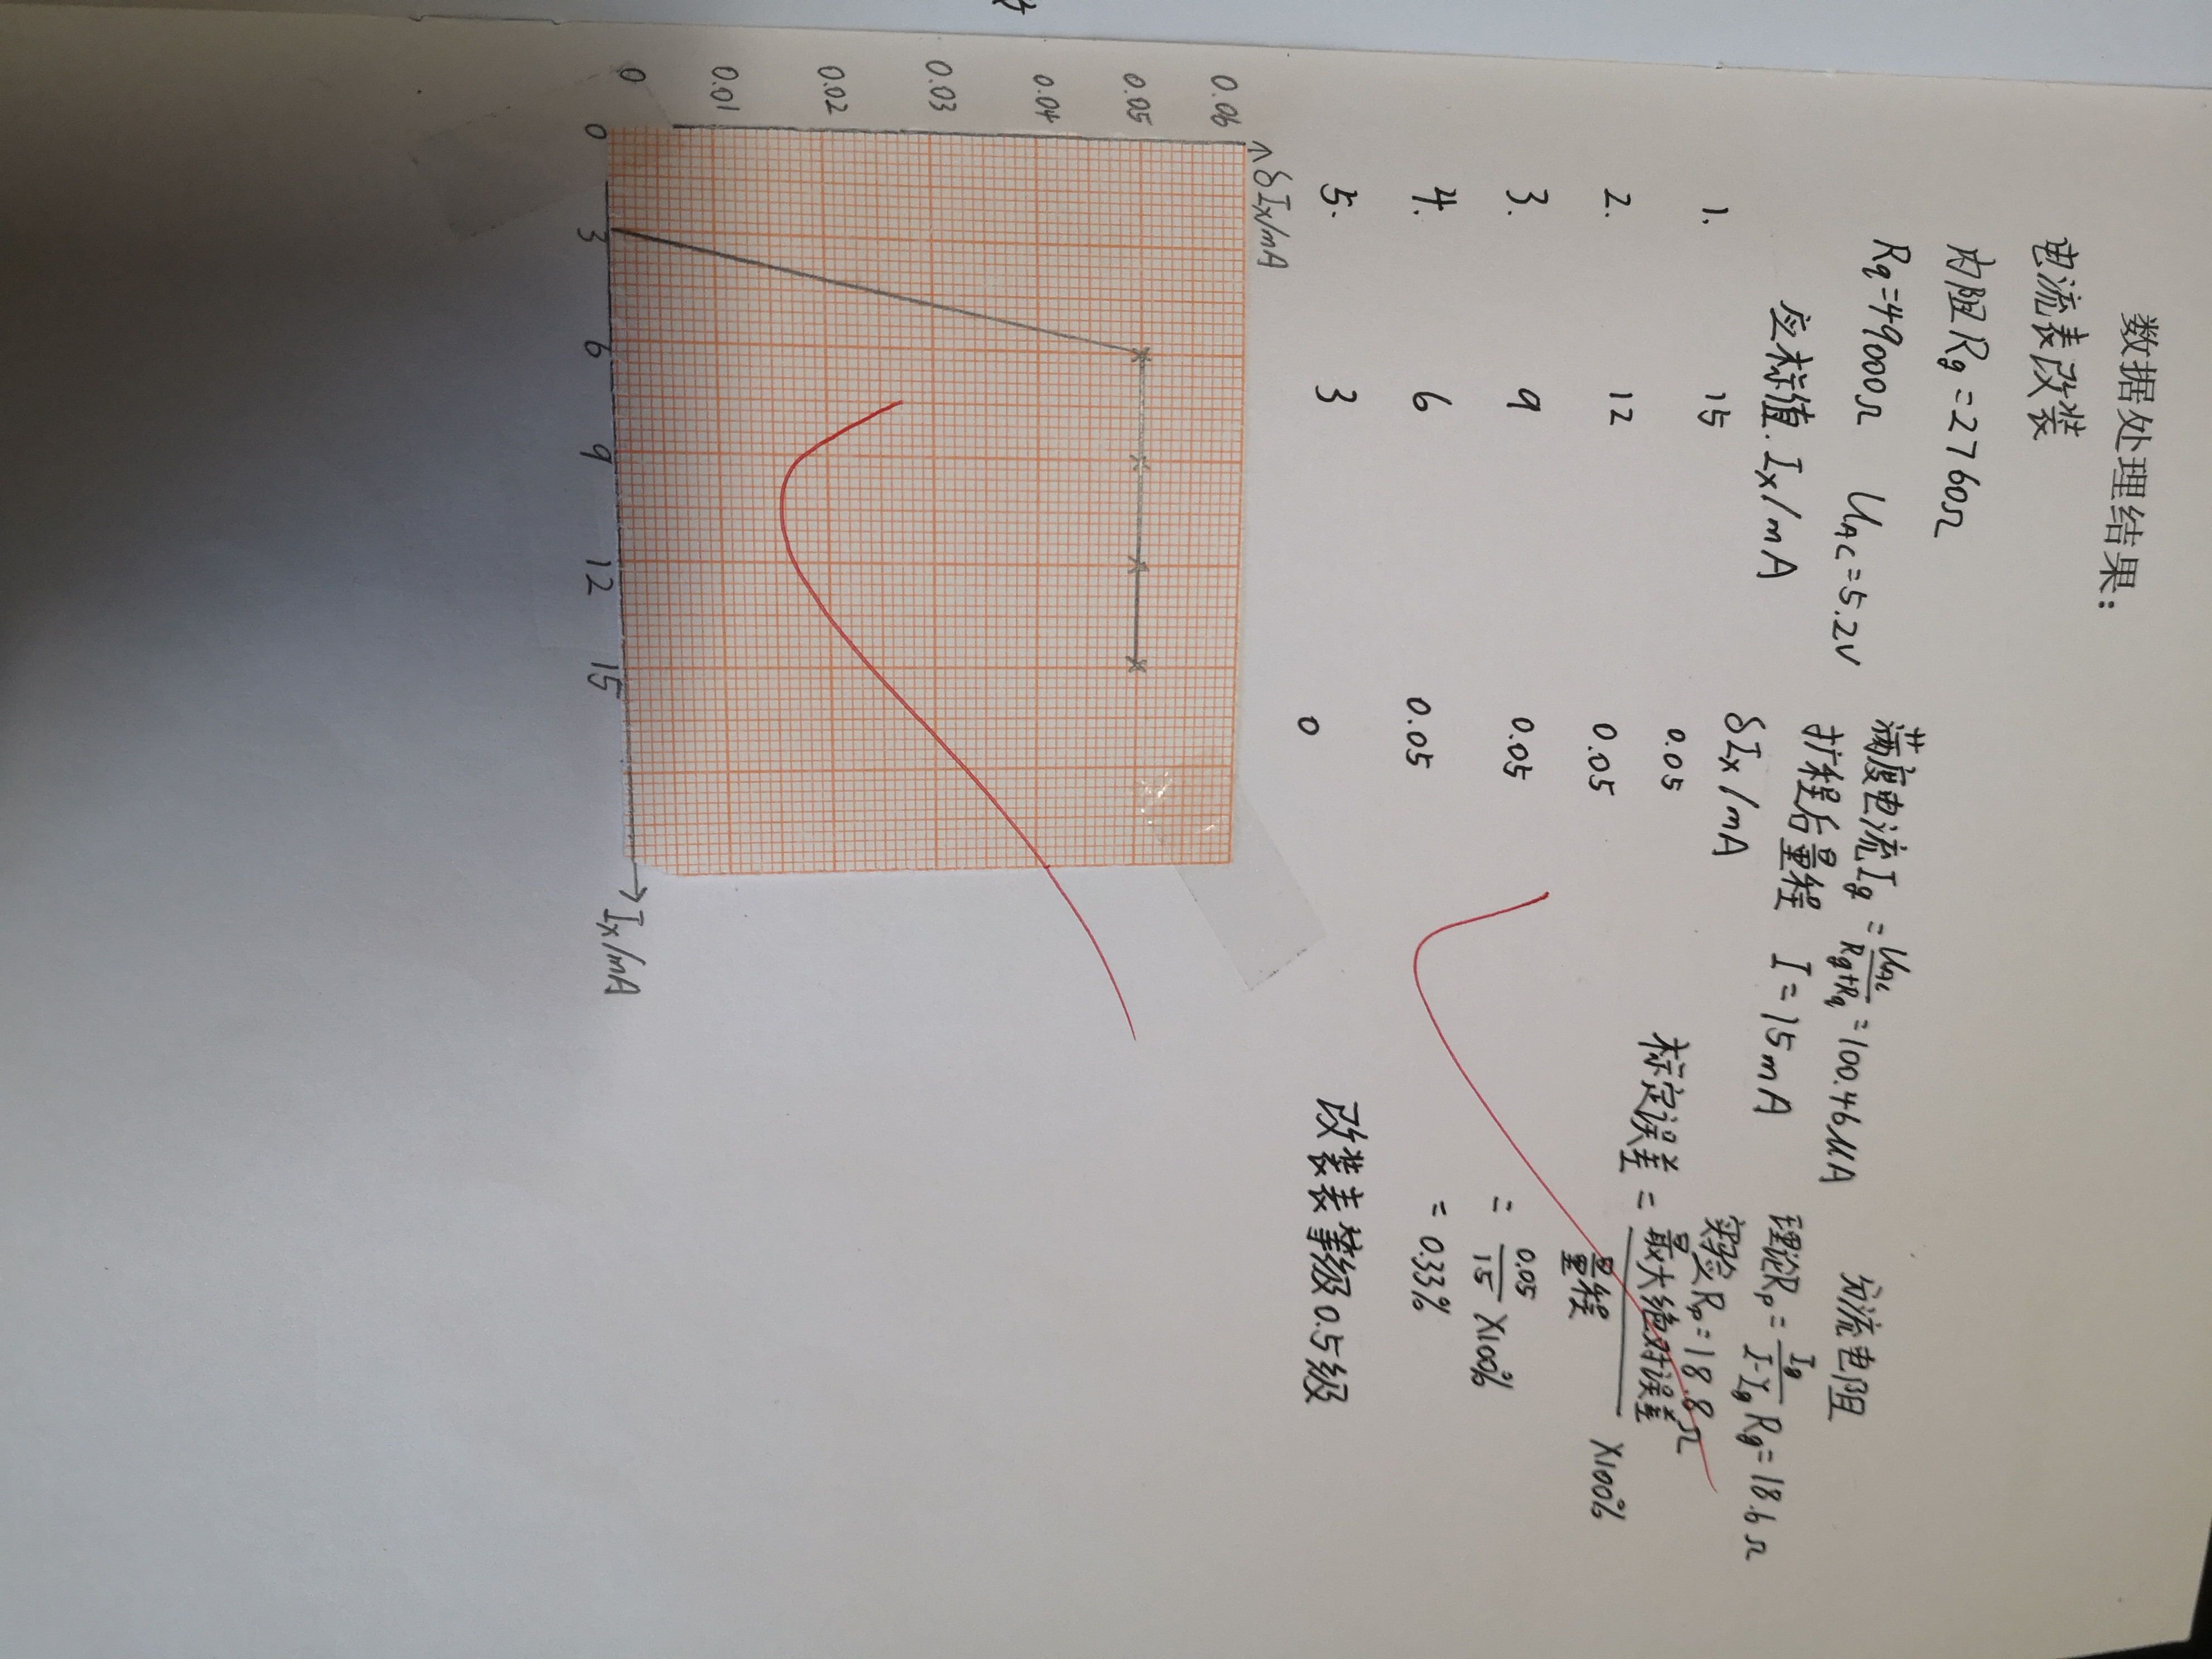 数据处理结果:
电流表改装
内阻Rg=2760Ω
满度电流Ig=UAC/(Rg+Rq)=100.46μA
分流电阻
Rq=49000Ω UAC=5.2V
扩程后量程 I=15mA
理论Rp=Ig/(I-Ig)Rg=18.6Ω
实验Rp=18.8Ω
应标值.Ix/mA δIx/mA
1. 15 0.05
2. 12 0.05
3. 9 0.05
4. 6 0.05
5. 3 0
标定误差=最大绝对误差/量程×100%
=0.05/15×100%
=0.33%
改装表等级0.5级
δIx/mA
0.06
0.05
0.04
0.03
0.02
0.01
0
0 3 6 9 12 15
Ix/mA